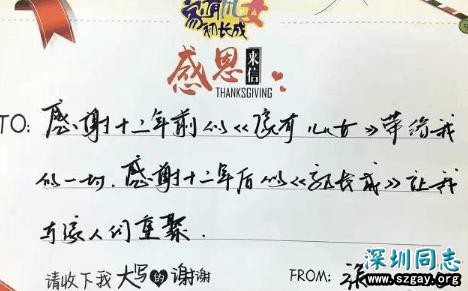 家有儿女
初长成
感恩来信
THANKSGIVING
TO: 感谢十二年前的《家有儿女》带给我
的一切，感谢十二年后的《初长成》让我
与家人们重聚.
请收下我大写的谢谢
FROM: 张
深圳同志
www.szgay.org